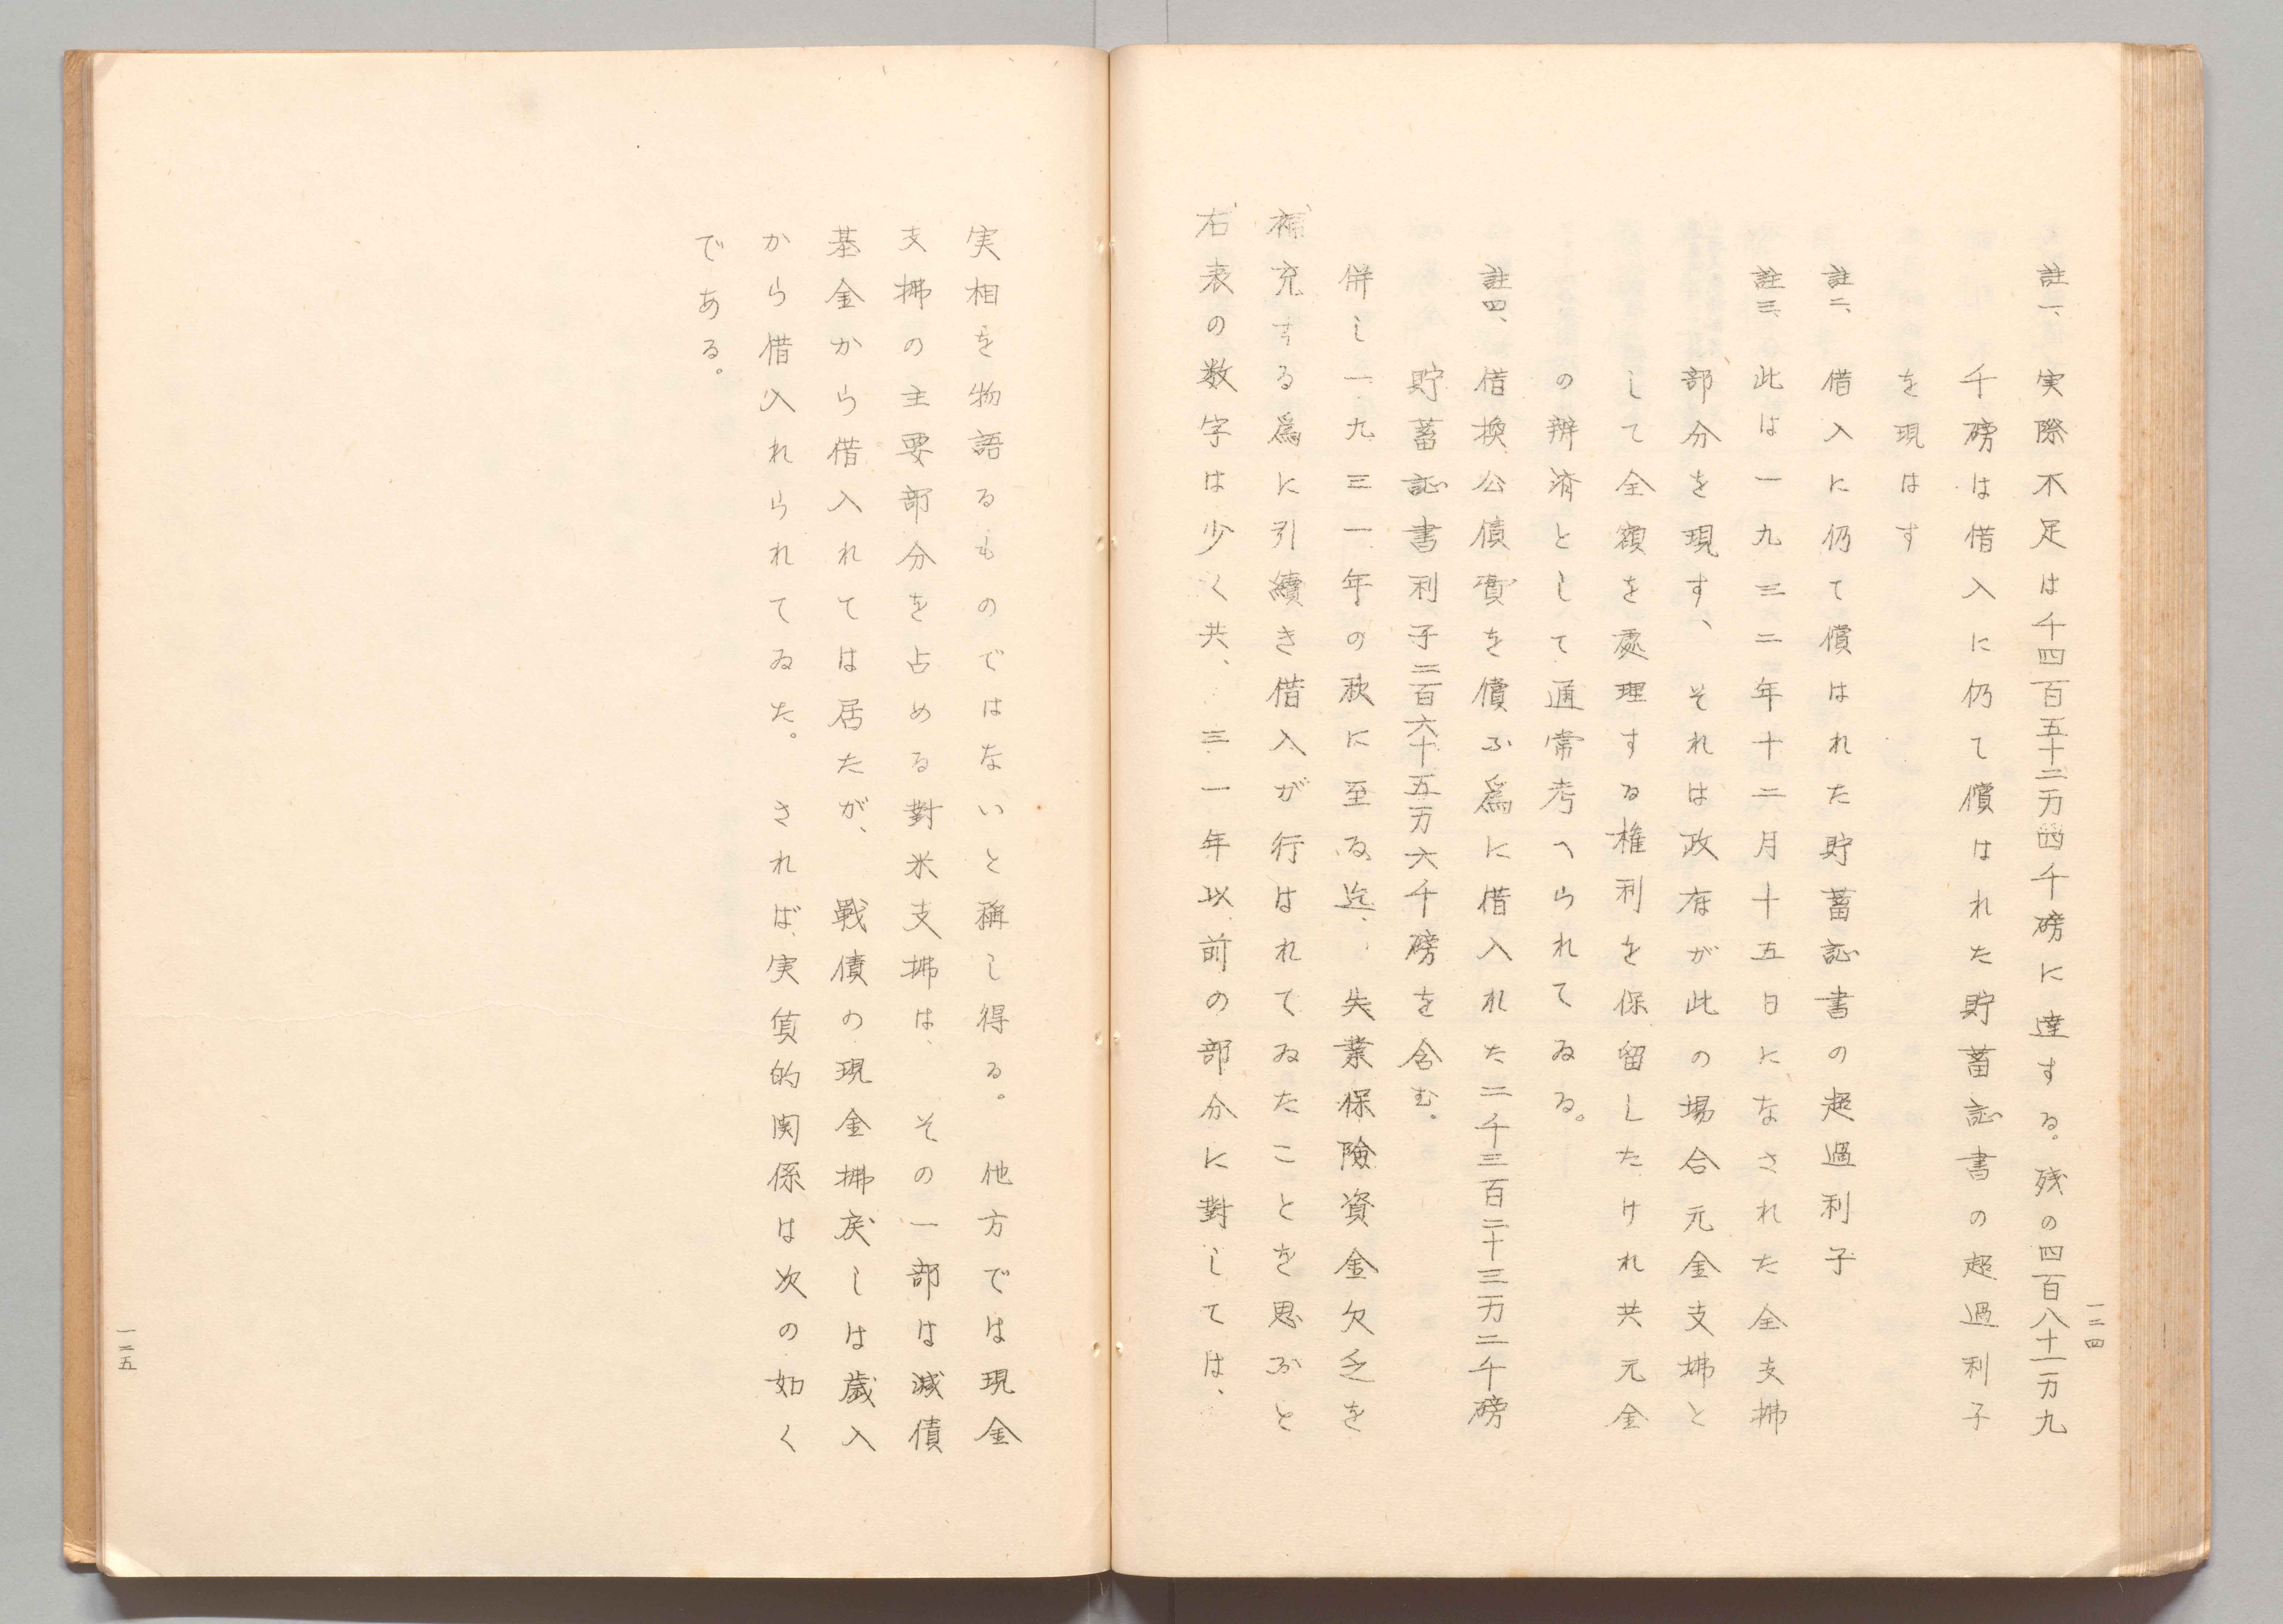 註一、実際不足は千四百五十二万四千磅に達する。残の四百八十一万九
千磅は借入に仍て償はれた貯蓄証書の超過利子
を現はす
註二、借入に仍て償はれた貯蓄証書の超過利子
註三、此は一九三二年十二月十五日になされた全支拂
部分を現す、それは政府が此の場合元金支拂と
して全額を處理する権利を保留したけれ共元金
の辨済として通常考へられてゐる。
註四、借換公債費を償ふ爲に借入れた二千三百二十三万二千磅
貯蓄証書利子三百六十五万六千磅を含む。
併し一九三一年の秋に至る迄、失業保険資金欠乏を
補充する爲に引續き借入が行はれてゐたことを思ふと
右表の数字は少く共、三一年以前の部分に對しては、
一二四
実相を物語るものではないと稱し得る。他方では現金
支拂の主要部分を占める對米支拂は、その一部は減債
基金から借入れては居たが、戰債の現金拂戻しは歳入
から借入れられてゐた。されば、実質的関係は次の如く
である。
一二五